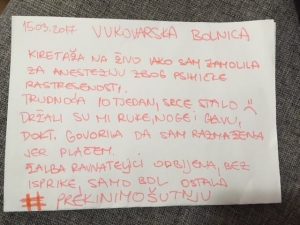 15.03.2017 VUKOVARSKA BOLNICA
KIRETAŽA NA ŽIVO IAKO SAM ZAMOLILA
ZA ANESTEZIJU ZBOG PSIHIČKE
RASTRESENOSTI.
TRUDNOĆA 10 TJEDAN, SRCE STALO ☹
DRŽALI SU MI RUKE, NOGE I GLAVU,
DOKT. GOVORILA DA SAM RAZMAŽENA
JER PLAČEM.
ŽALBA RAVNATELJICI ODBIJENA, BEZ
ISPRIKE, SAMO BOL OSTALA
#PREKINIMOŠUTNJU